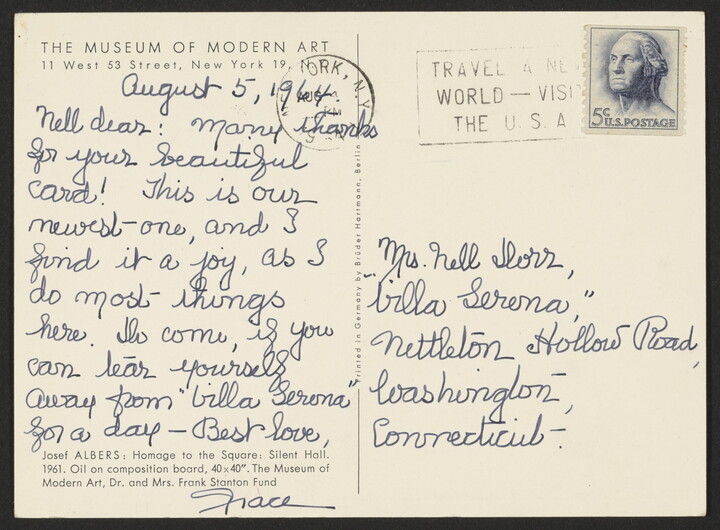 THE MUSEUM OF MODERN ART
11 West 53 Street, New York 19, N.
August 5, 1964.
Nell dear: Many thanks
for your beautiful
card! This is our
newest one, and I
find it a joy, as I
do most things
here. Do come, if you
can tear yourself
away from "Villa Serena"
for a day – Best love,
Josef ALBERS: Homage to the Square: Silent Hall.
1961. Oil on composition board, 40×40″. The Museum of
Modern Art, Dr. and Mrs. Frank Stanton Fund
Grace
Printed in Germany by Brüder Hartmann, Berlin
YORK, N.Y.
AUG
PM
TRAVEL A NE
WORLD — VISI
THE U.S.A
5c U.S. POSTAGE
Mrs. Nell Dorr,
"Villa Serena,"
Nettleton Hollow Road,
Washington,
Connecticut.